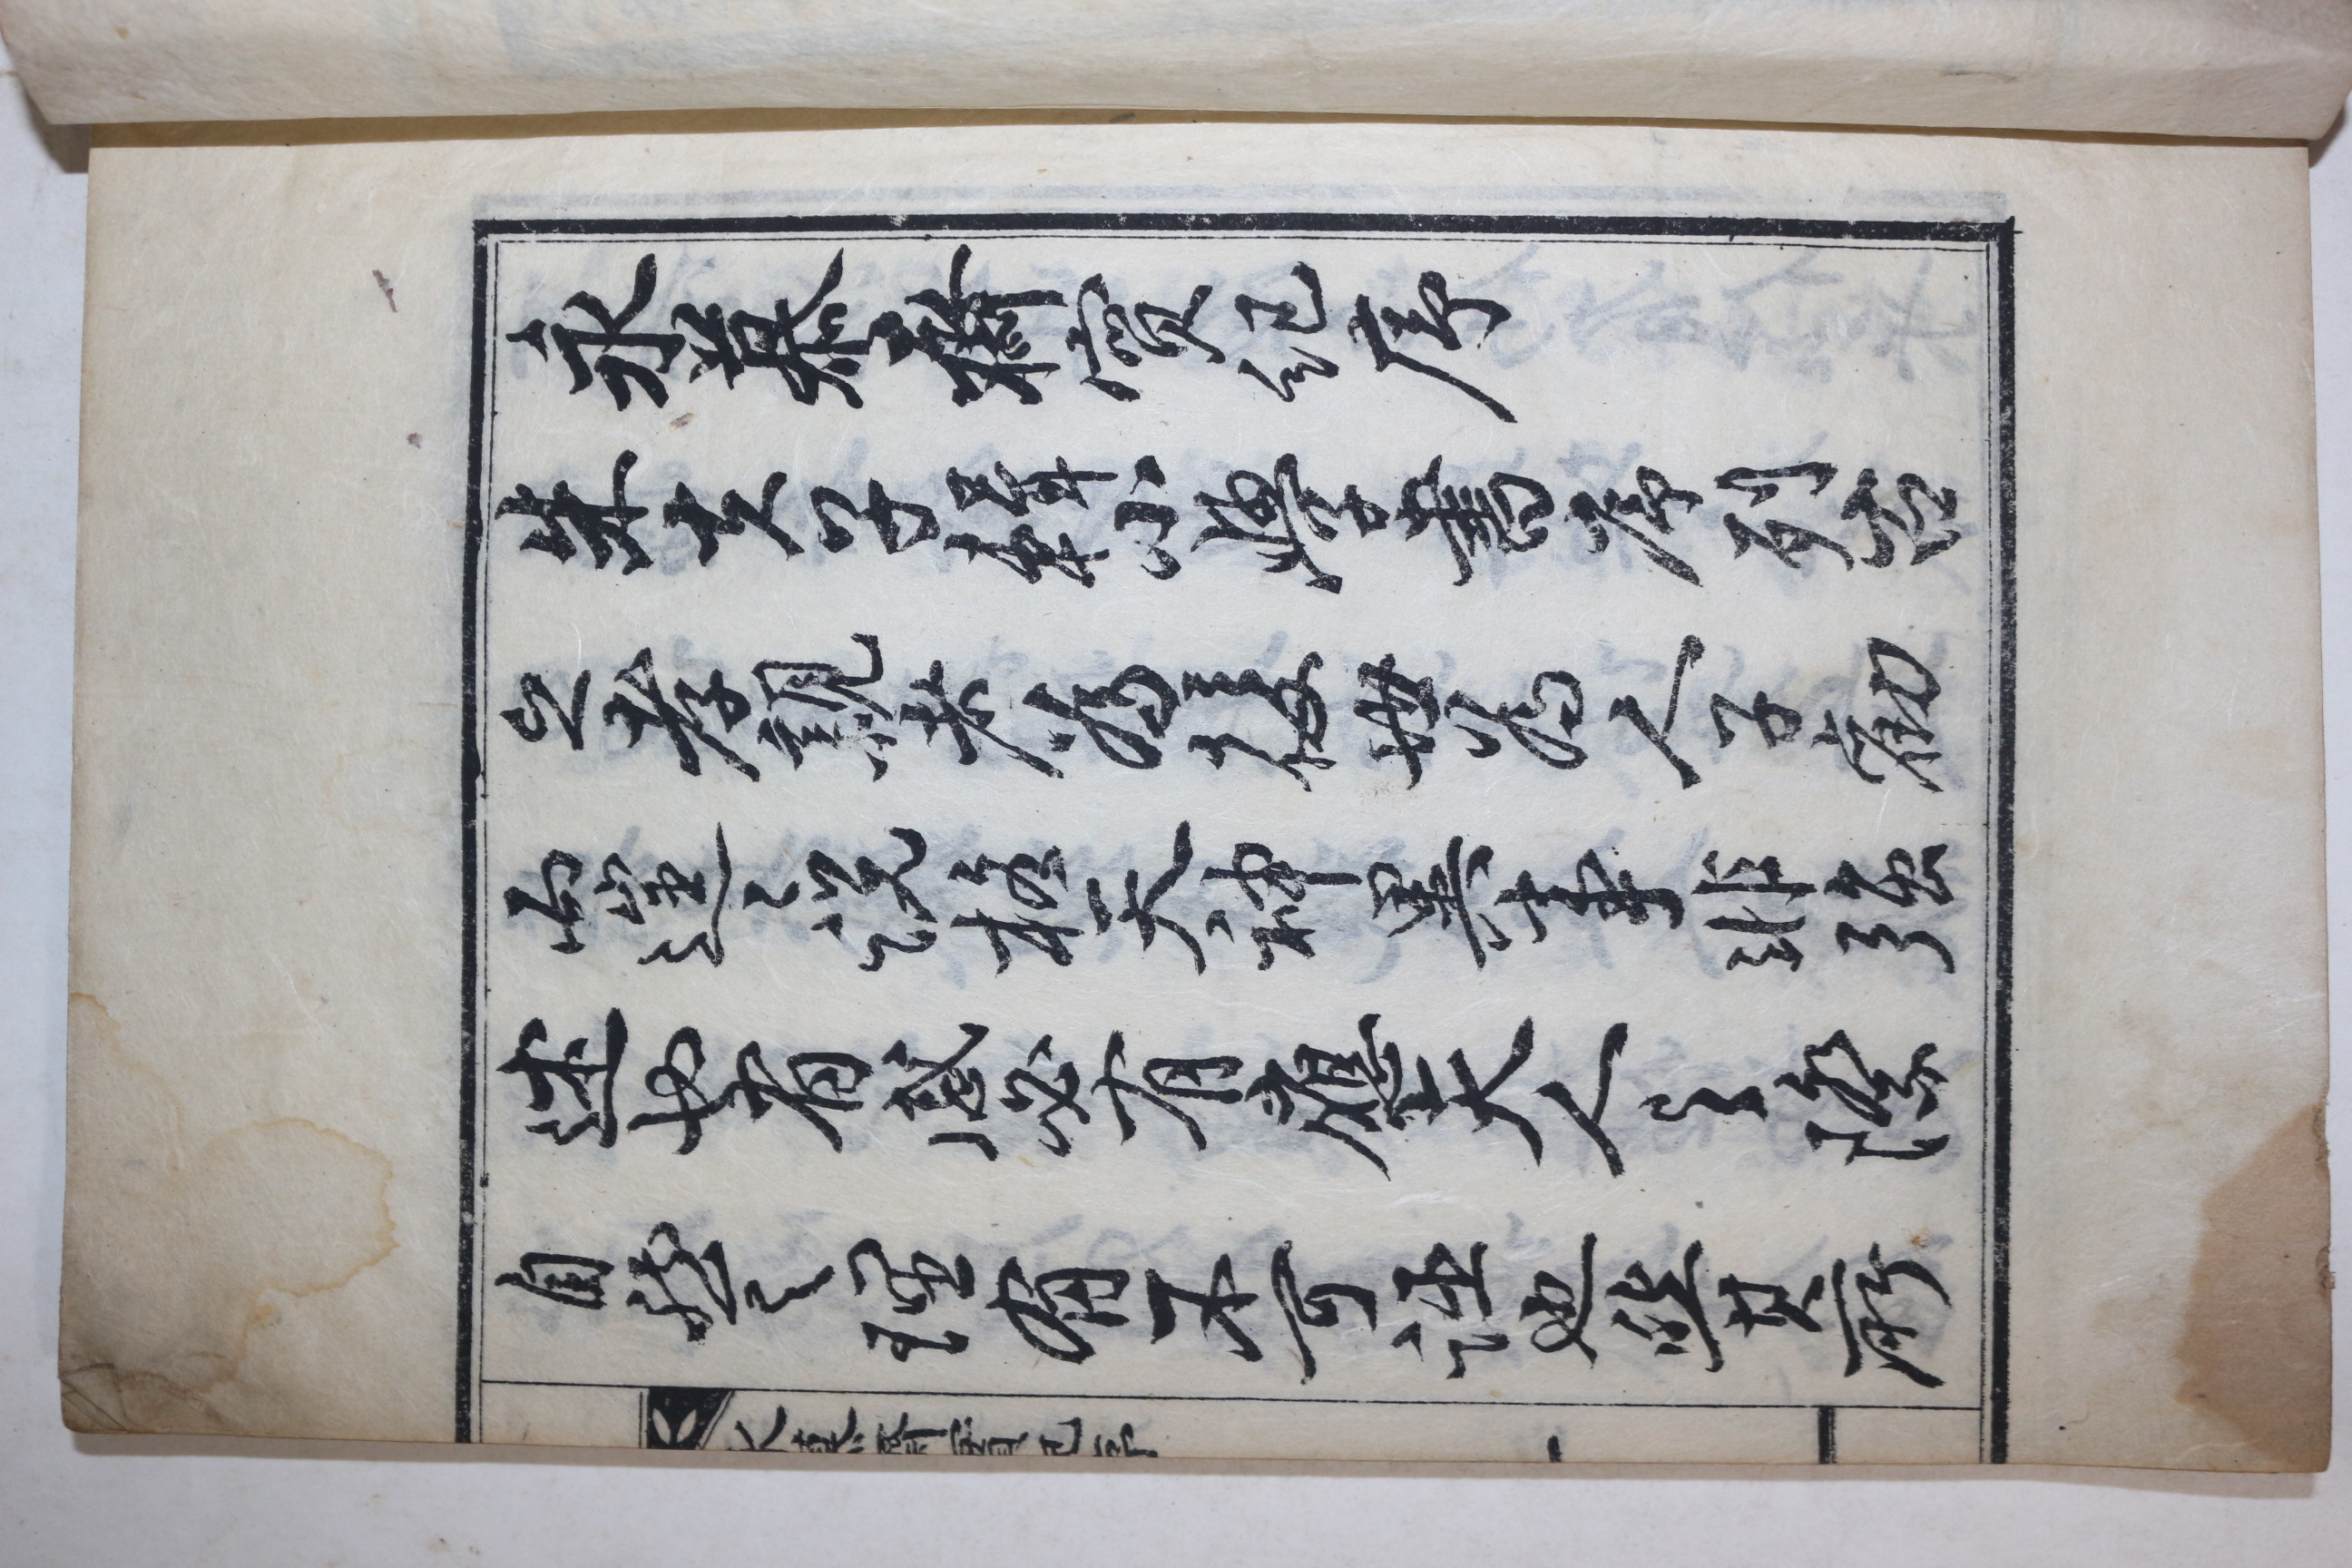 永慕齋實紀序
朱夫子輯小學書序列古
之孝親者為後世為人子勸
而說格天神異事非強
述也有感必有應天人之際
自然之理有不可誣也然其所